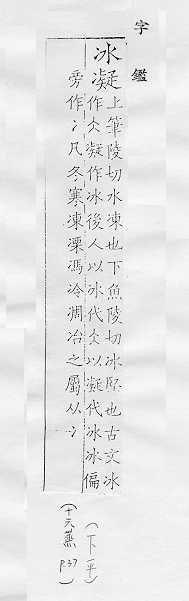 字鑑
冰凝
上筆陵切水凍也下魚陵切冰堅也古文冰
作仌凝作冰後人以冰代仌以凝代冰冰偏
旁作冫凡冬寒凍凓馮冷凋冶之屬从冫
(下平)
(十六蒸 P.37)